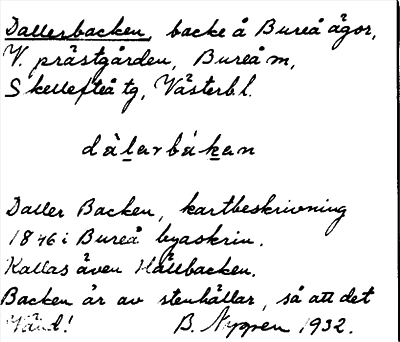 Dallerbacken, backe å Bureå ägor,
V. prästgården, Bureå m,
Skellefteå tg, Västerbl.
dàlarbákan
Daller Backen, kartbeskrivning
1846 i Bureå byaskrin.
Kallas även Hällbacken.
Backen är av stenhällar, så att det
B. Nygren 1932.